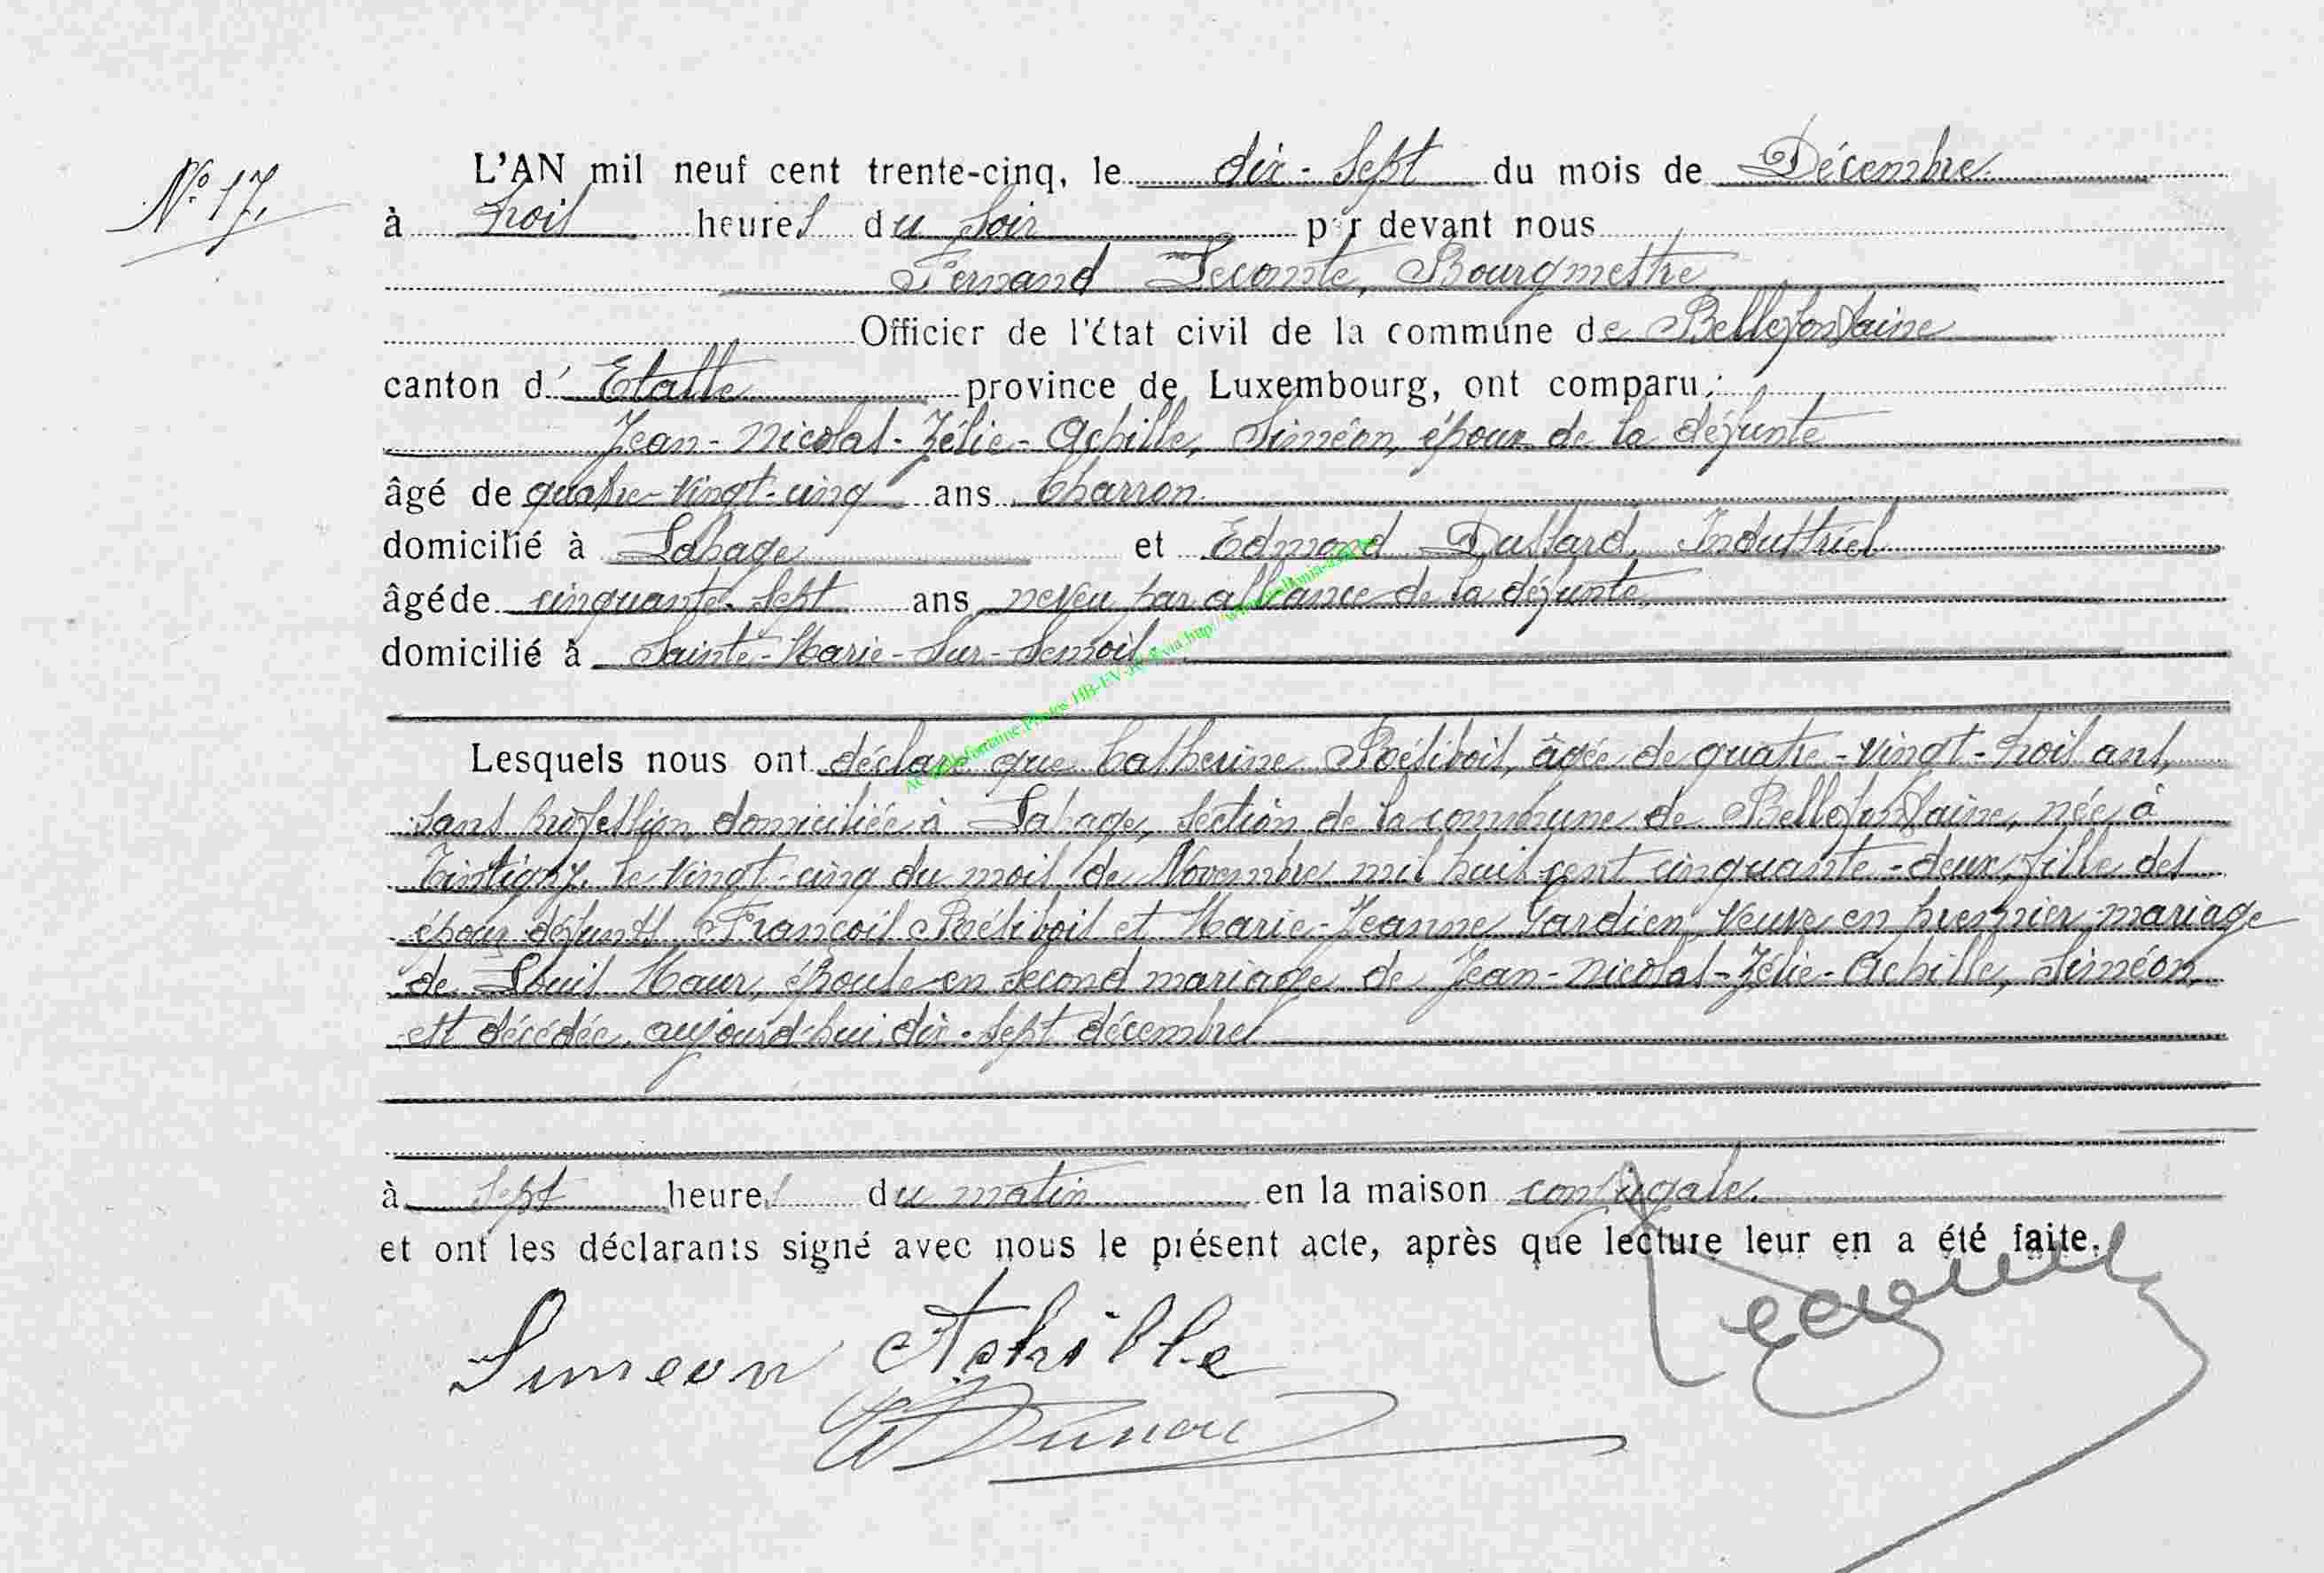 N° 17.
L'AN mil neuf cent trente-cinq, le dix-sept du mois de Décembre
à trois heures du soir par devant nous
Fernand Lecomte, Bourgmestre
Officier de l'état civil de la commune de Bellefontaine
canton d'Etalle province de Luxembourg, ont comparu :
Jean-Nicolas-Zélie-Achille, Siméon, époux de la défunte
âgé de quatre-vingt-cinq ans Charron.
domicilié à Lahage et Edmond Dussard, Industriel
âgé de cinquante-sept ans neveu par alliance de la défunte
domicilié à Sainte-Marie-sur-Semois
Lesquels nous ont déclaré que Catherine Poésibois, âgée de quatre-vingt-trois ans,
sans profession domiciliée à Lahage, section de la commune de Bellefontaine, née à
Tintigny, le vingt-cinq du mois de Novembre mil huit cent cinquante-deux, fille des
époux défunts François Poésibois et Marie-Jeanne Gardien, veuve en premier mariage
de Louis Maur, épouse en second mariage de Jean-Nicolas-Zélie-Achille, Siméon,
est décédée, aujourd'hui, dix-sept décembre
à sept heures du matin en la maison conjugale.
et ont les déclarants signé avec nous le présent acte, après que lecture leur en a été faite.
Simeon Achille